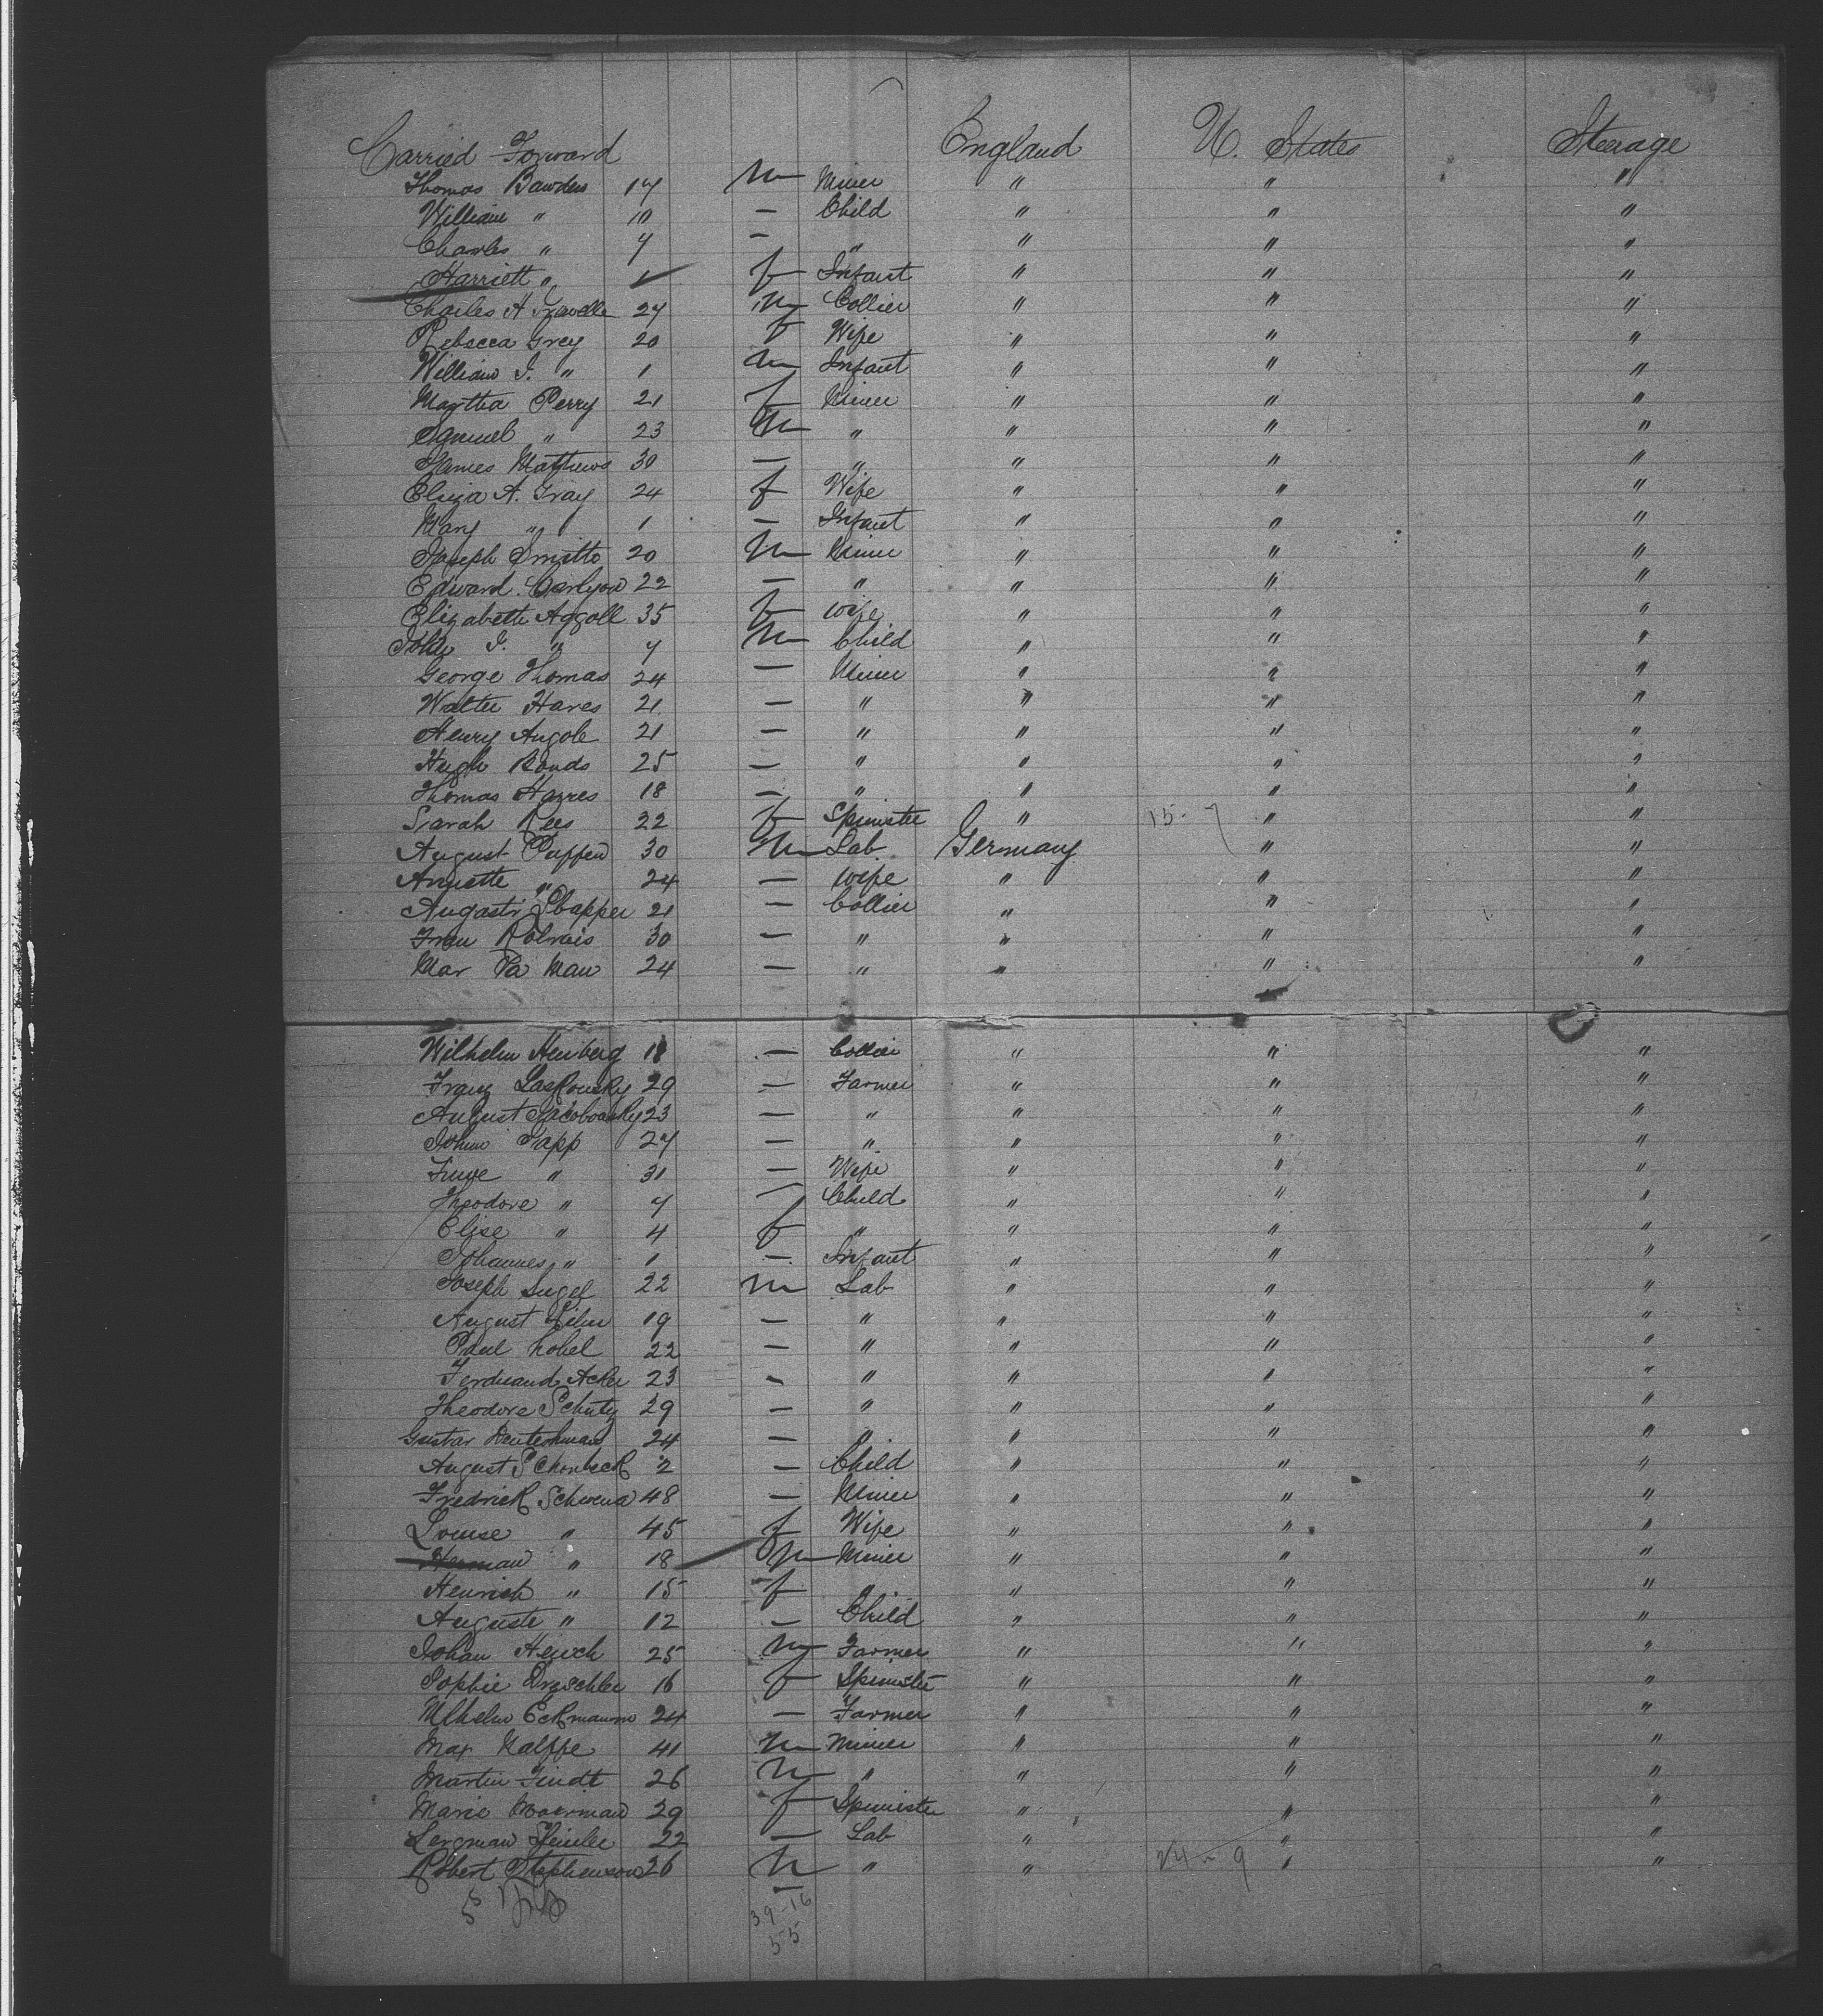 Carried Forward England U. States Steerage
Thomas Bawden 17 m Miner " " "
William " 10 — Child " " "
Charles " 7 — " " " "
Harriett " 1 f Infant " " "
Charles H 27 m Collier " " "
Rebecca Grey 20 f Wife " " "
William J. " 1 m Infant " " "
Martha Perry 21 f Miner " " "
Samuel " 23 m " " " "
James Mathews 30 — " " " "
Eliza A. Gray 24 f Wife " " "
Mary " 1 — Infant " " "
Joseph Smitto 20 m Miner " " "
Edward Carlyon 22 — " " " "
Elizabeth Angoll 35 f wife " " "
John J. " 7 m Child " " "
George Thomas 24 — Miner " " "
Walter Hares 21 — " " " "
Henry Angole 21 — " " " "
Hugh Bonds 25 — " " " "
Thomas Harres 18 — " " " "
Sarah Rees 22 f Spinster " 15-7 " "
August Puffen 30 m Lab. Germany " "
Annette " 24 — wife " " "
August 21 — Collier " " "
30 — " " " "
Mar Pa Man 24 — " " " "
Wilhelm Henberg 18 — Collier " " "
Franz Laskousky 29 — Farmer " " "
August Jacobowsky 23 — " " " "
Johan Papp 27 — " " " "
" 31 — Wife " " "
Theodore " 7 — Child " " "
Elise " 4 f " " " "
Johannes " 1 — Infant " " "
Joseph Sugel 22 m Lab " " "
August 19 — " " " "
Paul Lobel 22 — " " " "
Ferdinand Acker 23 — " " " "
Theodore Schutz 29 — " " " "
Gustav Deuterhman 24 — " " " "
August Schonbeck 2 — Child " " "
Fredrick Schwena 48 — Miner " " "
Louise " 45 f Wife " " "
Herman " 18 m Miner " " "
Henrich " 15 f " " " "
Auguste " 12 — Child " " "
Johan Heuch 25 m Farmer " " "
Sophie Dreschler 16 f Spinster " " "
Wlhelm Eckmann 24 — Farmer " " "
Max Kalffe 41 m Miner " " "
Martin Findt 26 m " " " "
Marie Moorman 29 f Spinster " " "
Lergman 22 — Lab " " "
Robert Stephenson 26 m " " 24-9 " "
39-16
55